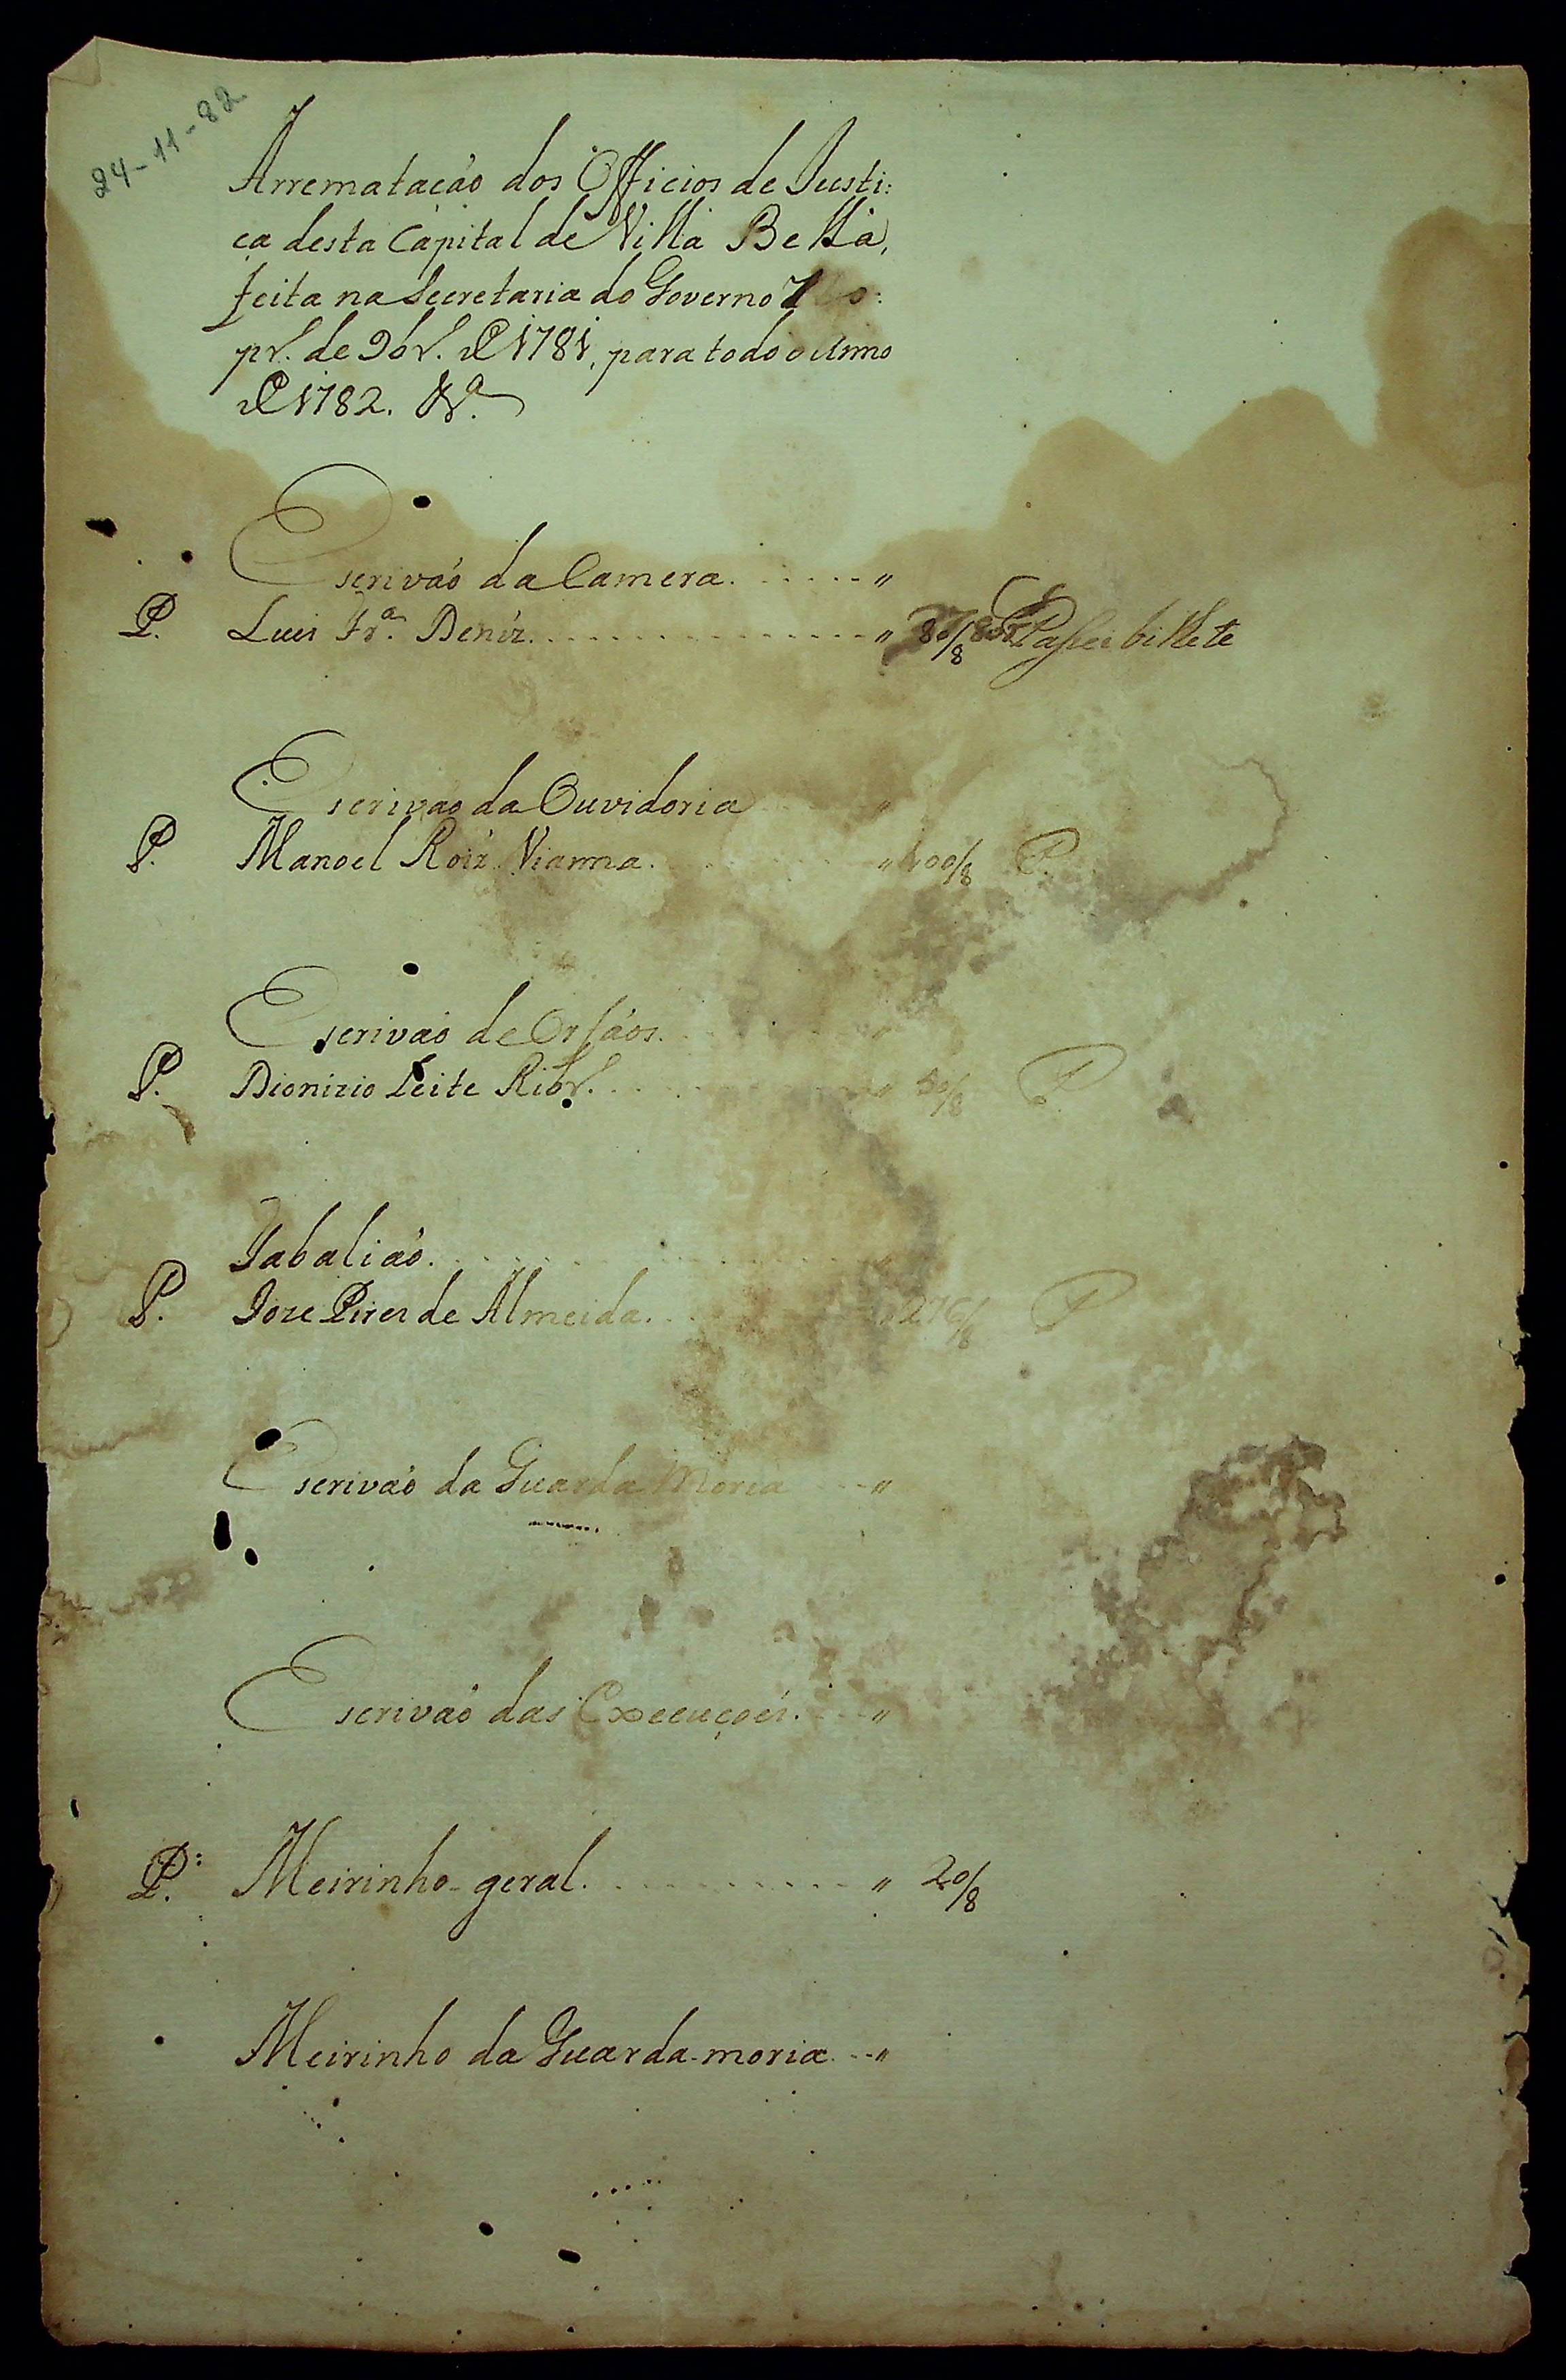 24-11-82
Arremataçaó dos Officios de Justi:
ça desta Capital de Villa Bella,
feita na Secretaria do Governo
pr. de 9br. de 1781, para todo o Anno
de 1782. Na.
Escrivaó da Camera. . . . . . . "
P. Luis Fra. Deniz. . . . . . . . . . . . . . . " 80/8 Passei bilhete
Escrivaó da Ouvidoria "
P. Manoel Roiz Vianna. . . . . " 400/8 P.
Escrivaó de Orfáos. . . . . "
P. Dionizio Leite Ribr. . . . . . . " 50/8 P.
Tabaliaó. . . . . . . "
P. Joze Pires de Almeida. . . . " 276/8 P
Escrivaó da Guarda Moria . . "
Escrivaó das Execuçoés. . . . "
P. Meirinho-geral. . . . . . . . . . . " 20/8
Meirinho da Guarda-moria . . "